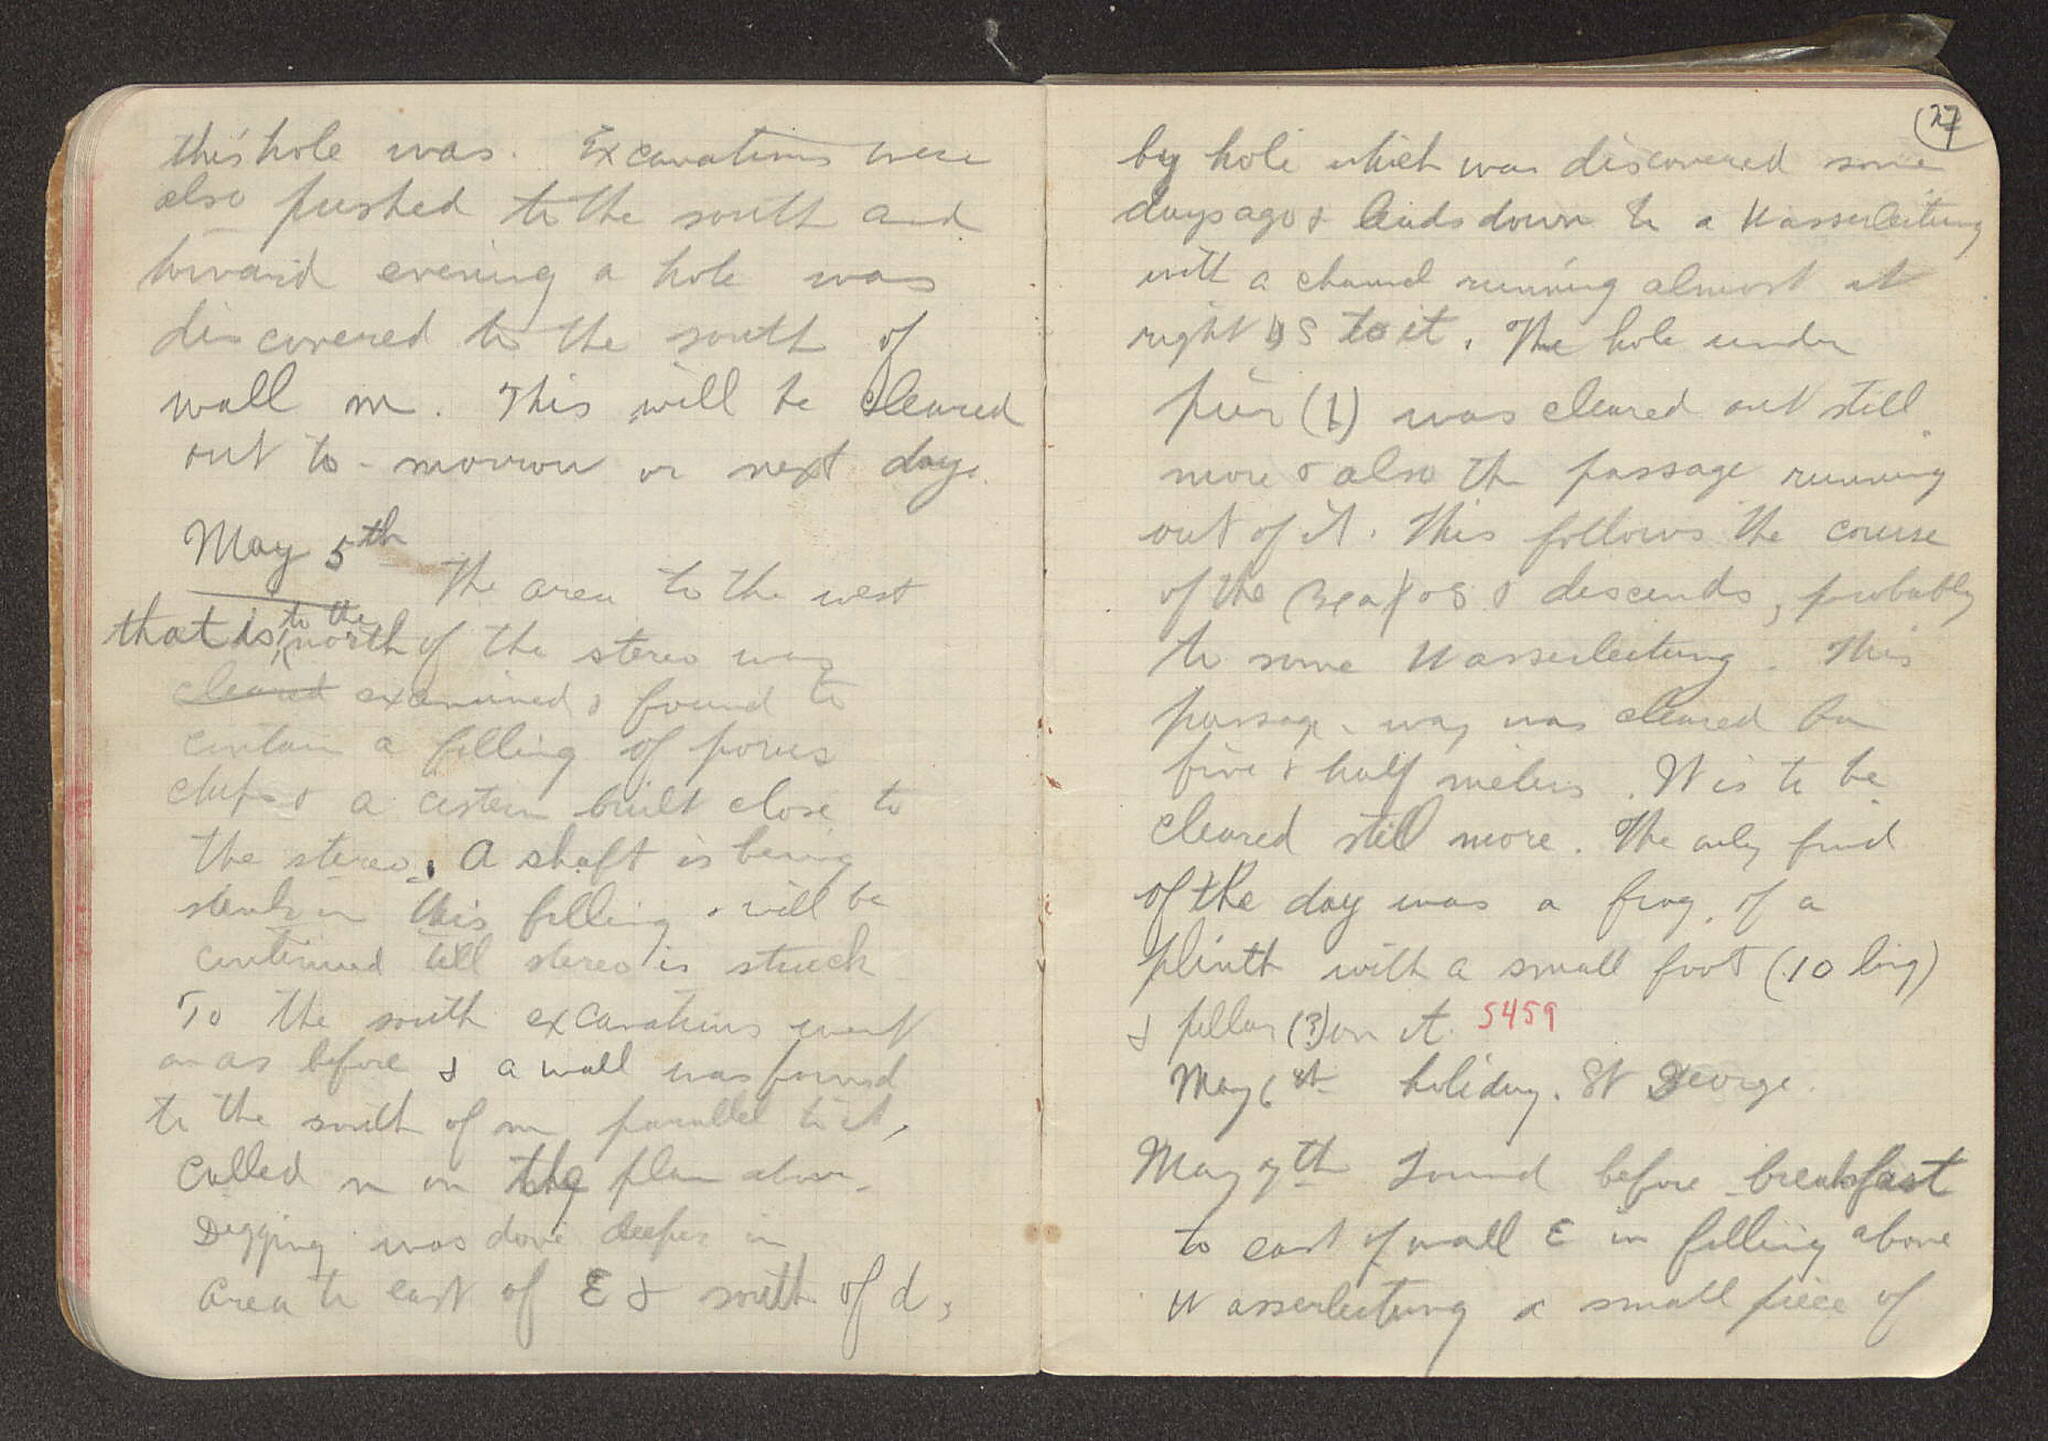 this hole was. Excavations were
also pushed to the south and
toward evening a hole was
discovered to the south of
wall m. This will be cleared
out to-morrow or next day.
May 5th The area to the west
that is, to the north of the stereo was
cleared examined & found to
contain a filling of poros
chips & a cistern built close to
the stereo. A shaft is being
sunk in this filling & will be
continued till stereo is struck
To the south excavations went
on as before & a wall was found
to the south of m parallel to it,
called n on the plan above.
Digging was done deeper in
area to east of E & south of d,
27
by hole which was discovered some
days ago & leads down to a Wasserleitung
with a channel running almost at
right ∠s to it. The hole under
pier (1) was cleared out still
more & also the passage running
out of it. This follows the course
of the & descends, probably
to some Wasserleitung. This
passage-way was cleared for
five & half meters. It is to be
cleared still more. The only find
of the day was a frag. of a
plinth with a small foot (.10 long)
& pillar (?) on it. S459
May 6th holiday. St George.
May 7th Found before breakfast
to east of wall E in filling above
Wasserleitung a small piece of